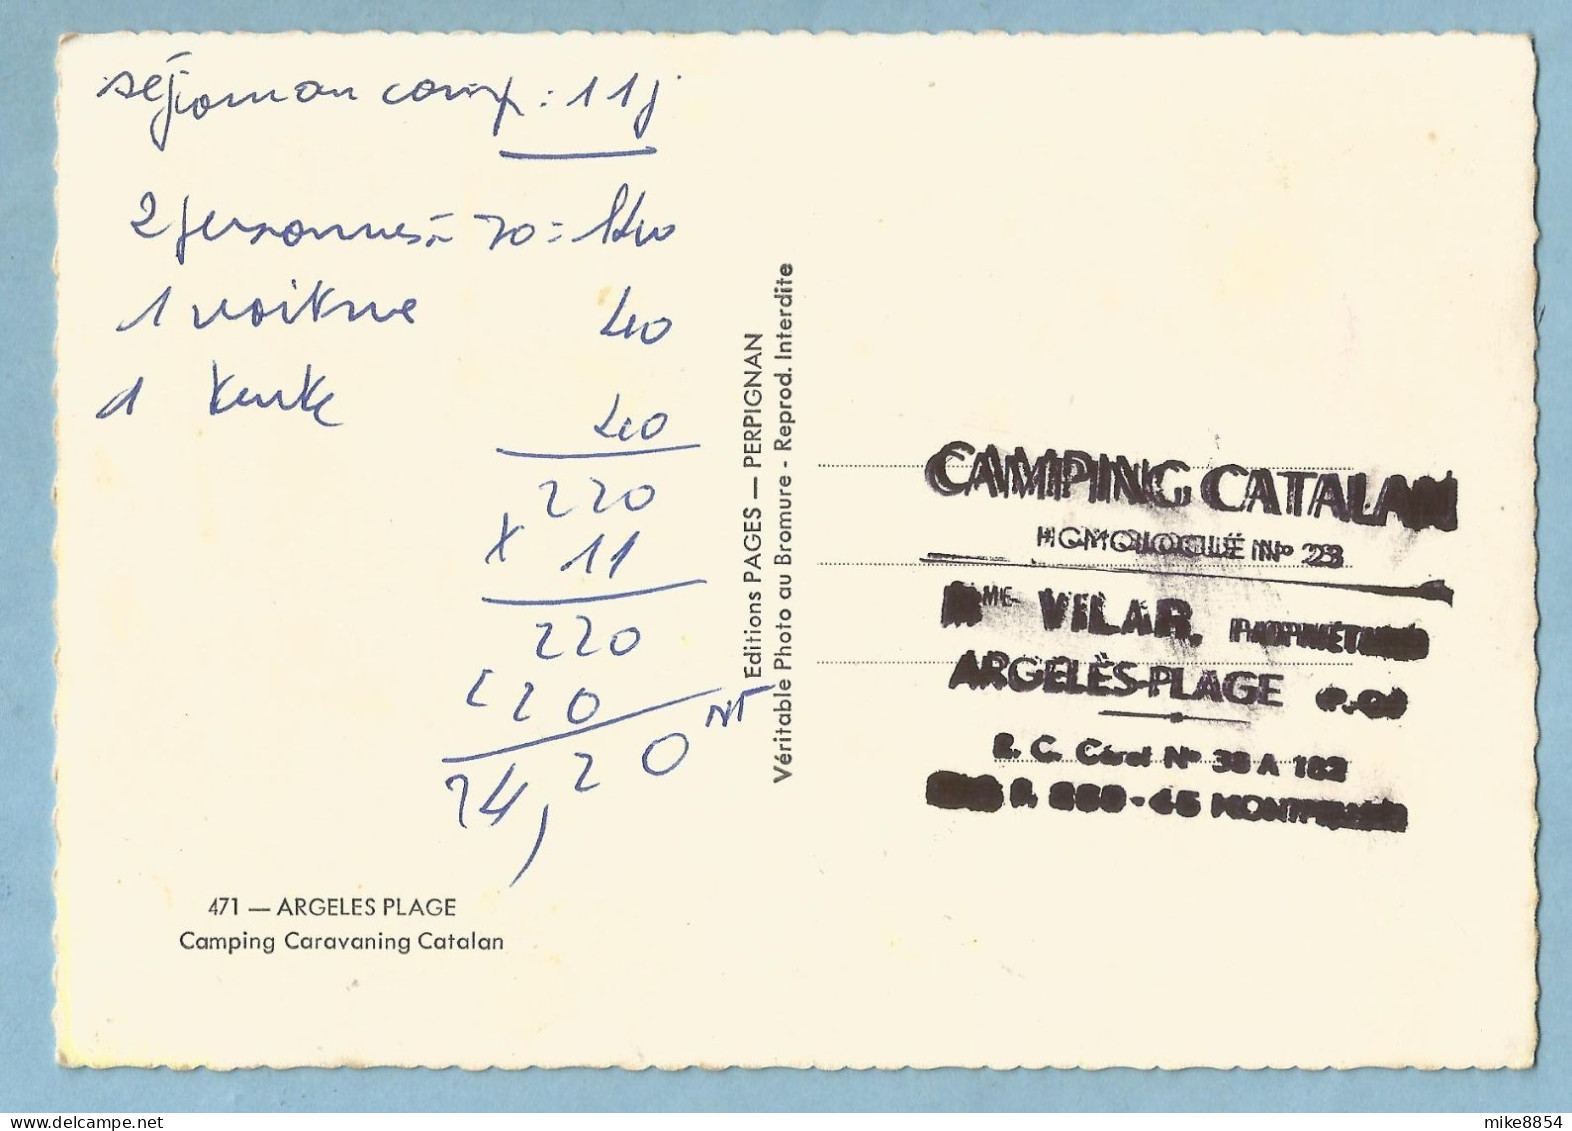 séjour au camp : 11j
2 personnes à 70 = 140
1 voiture 40
1 tente 40
220
x 11
220
220
24,20 NF
471 — ARGELES PLAGE
Camping Caravaning Catalan
Editions PAGES — PERPIGNAN
Véritable Photo au Bromure - Reprod. Interdite
CAMPING CATALAN
HOMOLOGUÉ N° 23
MME VILAR, PROPRIÉTAIRE
ARGELÈS-PLAGE (P.-O.)
R. C. Céret N° 38 A 182
MONTPELLIER
mike8854